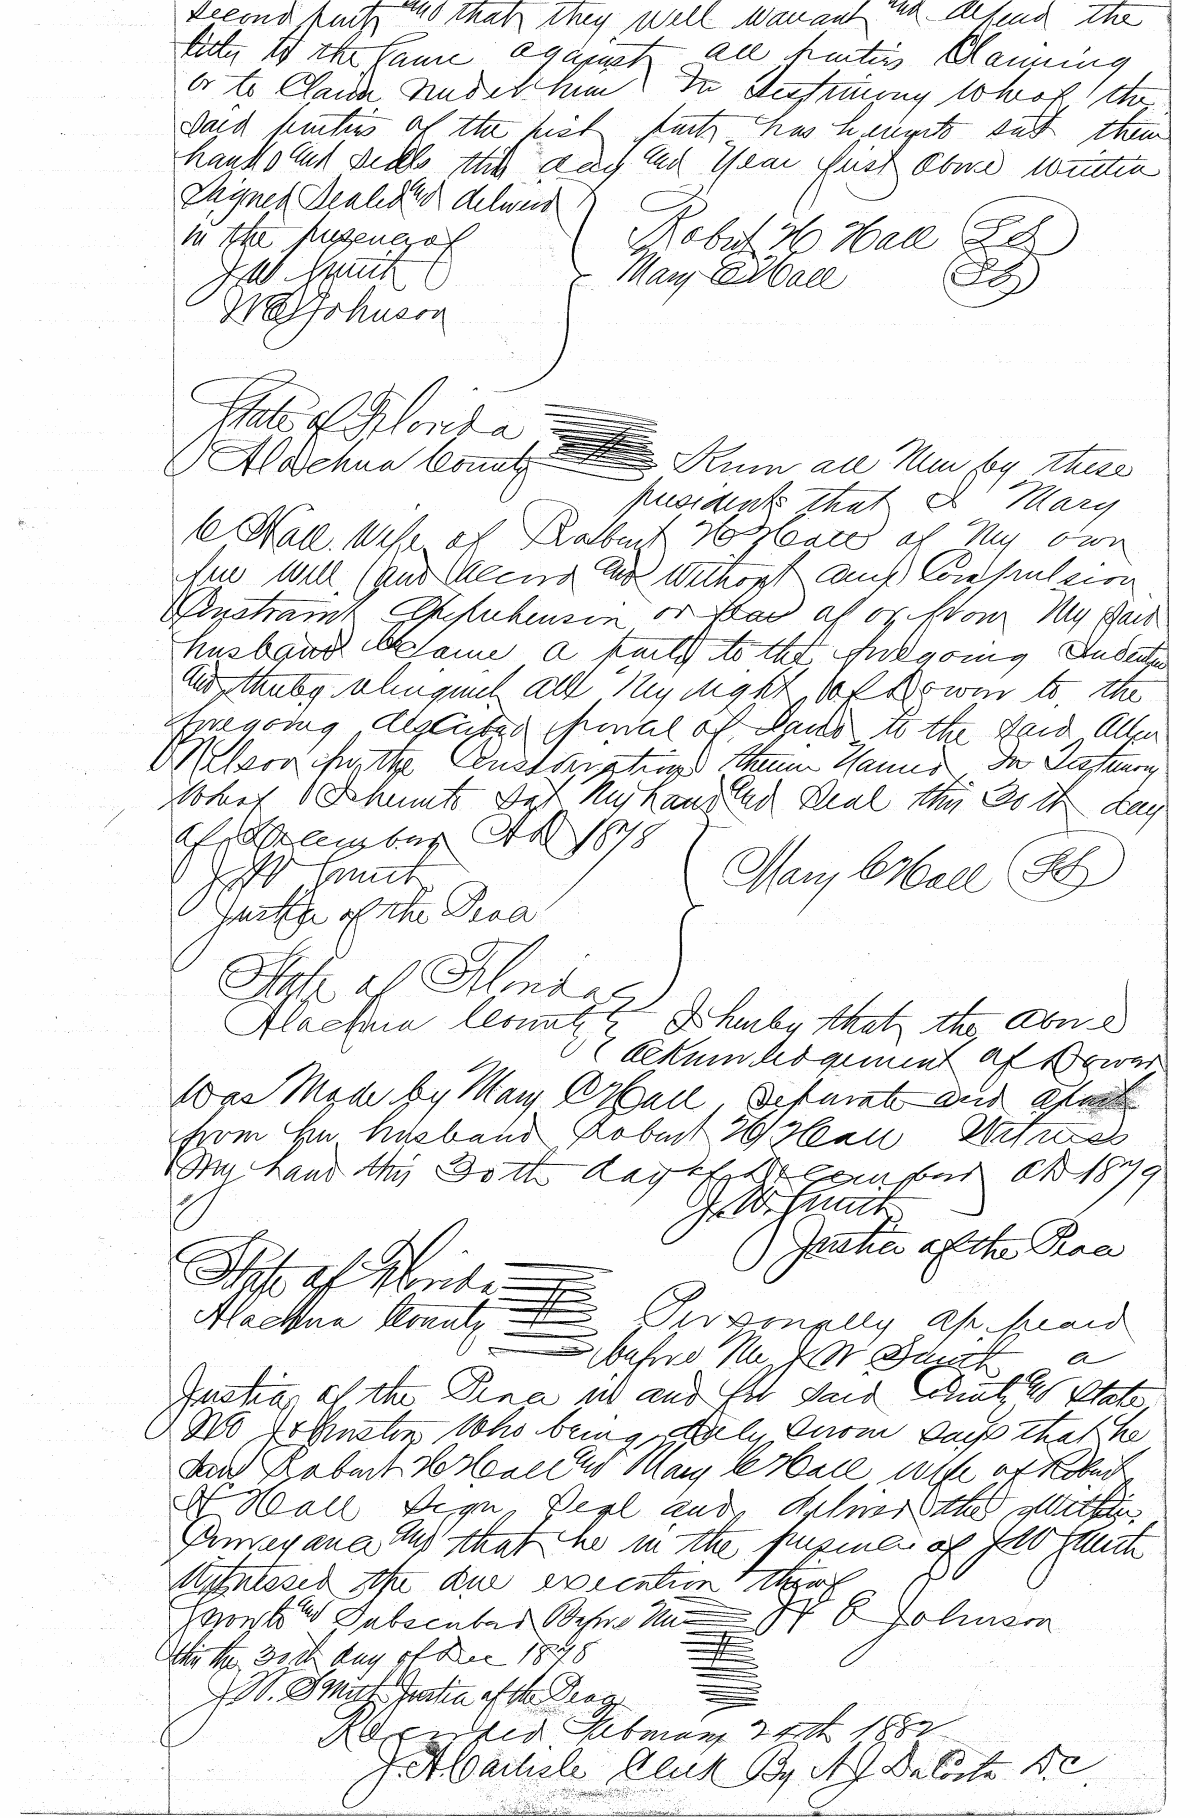 second party and that they will warrant and defend the
title to the same against all parties Claiming
or to Claim under him In Testimony Whereof the
said parties of the first party has hereunto set them
hands and seals this day and Year first above written
Signed Sealed and delivered
in the presence of
J W Smith
W E Johnson
Robert H Hall LS
Mary C Hall LS
State of Florida
Alachua County Know all Men by these
presidents that I Mary
C Hall wife of Robert H Hall of My own
free will and accord and without any Compulsion
Constraint Apprehension or fear of or from My said
husband became a party to the foregoing Indenture
and thereby relinquish all My right of Dower to the
foregoing described parcel of Land to the said Allen
Nelson for the Consideration therein Named In Testimony
Whereof I hereunto set My hand and Seal this 30th day
of December AD 1878
J W Smith
Justice of the Peace
Mary C Hall LS
State of Florida
Alachua County I hereby that the above
acknowledgement of Dower
Was Made by Mary C Hall separate and apart
from her husband Robert H Hall Witness
My hand this 30th day of December AD 1879
J. W. Smith
Justice of the Peace
State of Florida
Alachua County Personally appeard
before Me J W Smith a
Justice of the Peace in and for said County and State
W E Johnston Who being duly sworn says that he
saw Robert H Hall and Mary C Hall wife of Robert
H Hall sign, Seal and deliver the Within
Conveyance and that he in the presence of J W Smith
Witnessed the due execution thereof
Sworn to and Subscribed Before Me
W E Johnson
this the 30th day of Dec 1878
J. W. Smith Justice of the Peace
Recorded February 24th 1882
J. A. Carlisle Clerk By A J DaCosta D.C.